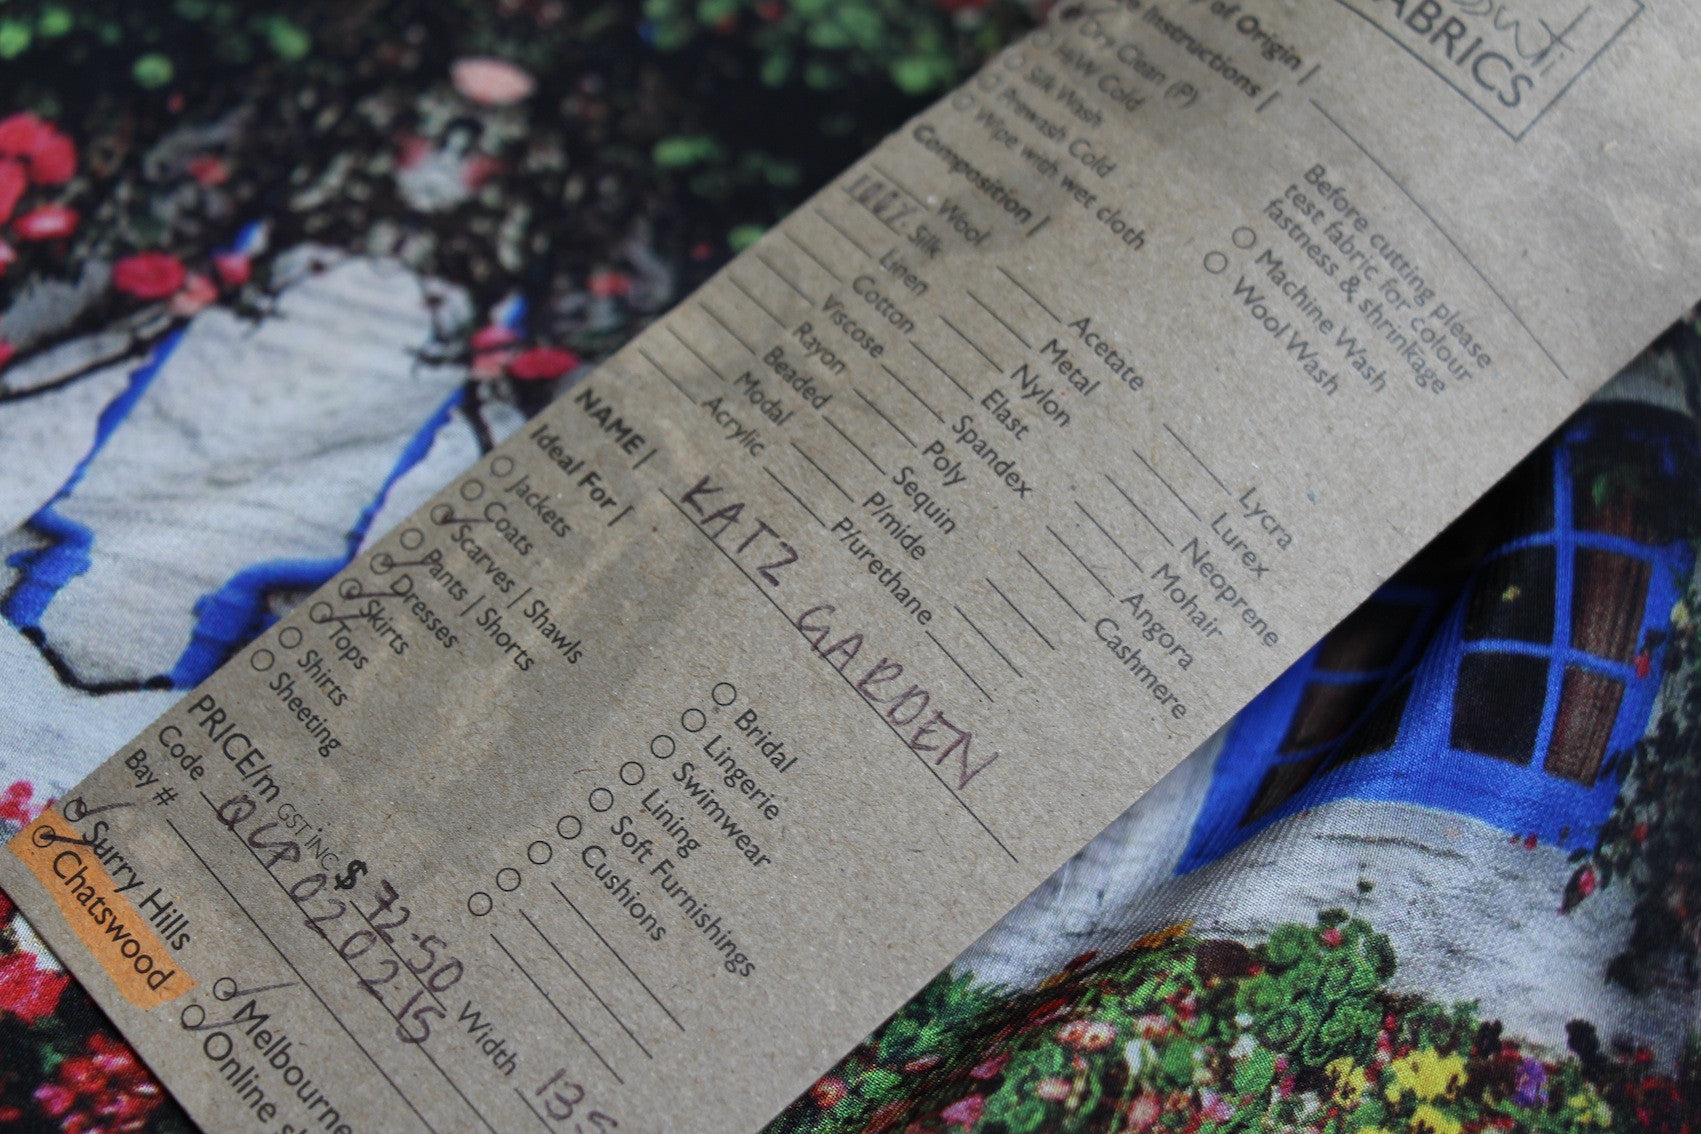 FABRICS
of Origin |
Instructions |
Dry Clean (P)
H/W Cold
Silk Wash
Prewash Cold
Wipe with wet cloth
Before cutting please
test fabric for colour
fastness & shrinkage
Machine Wash
Wool Wash
Composition |
Wool
100% Silk
Linen
Cotton
Viscose
Rayon
Beaded
Modal
Acrylic
Acetate
Metal
Nylon
Elast
Spandex
Poly
Sequin
P/mide
P/urethane
Lycra
Lurex
Neoprene
Mohair
Angora
Cashmere
NAME | KATZ GARDEN
Ideal For |
Jackets
Coats
Scarves | Shawls
Pants | Shorts
Dresses
Skirts
Tops
Shirts
Sheeting
Bridal
Lingerie
Swimwear
Lining
Soft Furnishings
Cushions
PRICE/m GST INC. $ 72.50 Width 135
Code QCP020215
Bay #
Surry Hills
Chatswood
Melbourne
Online